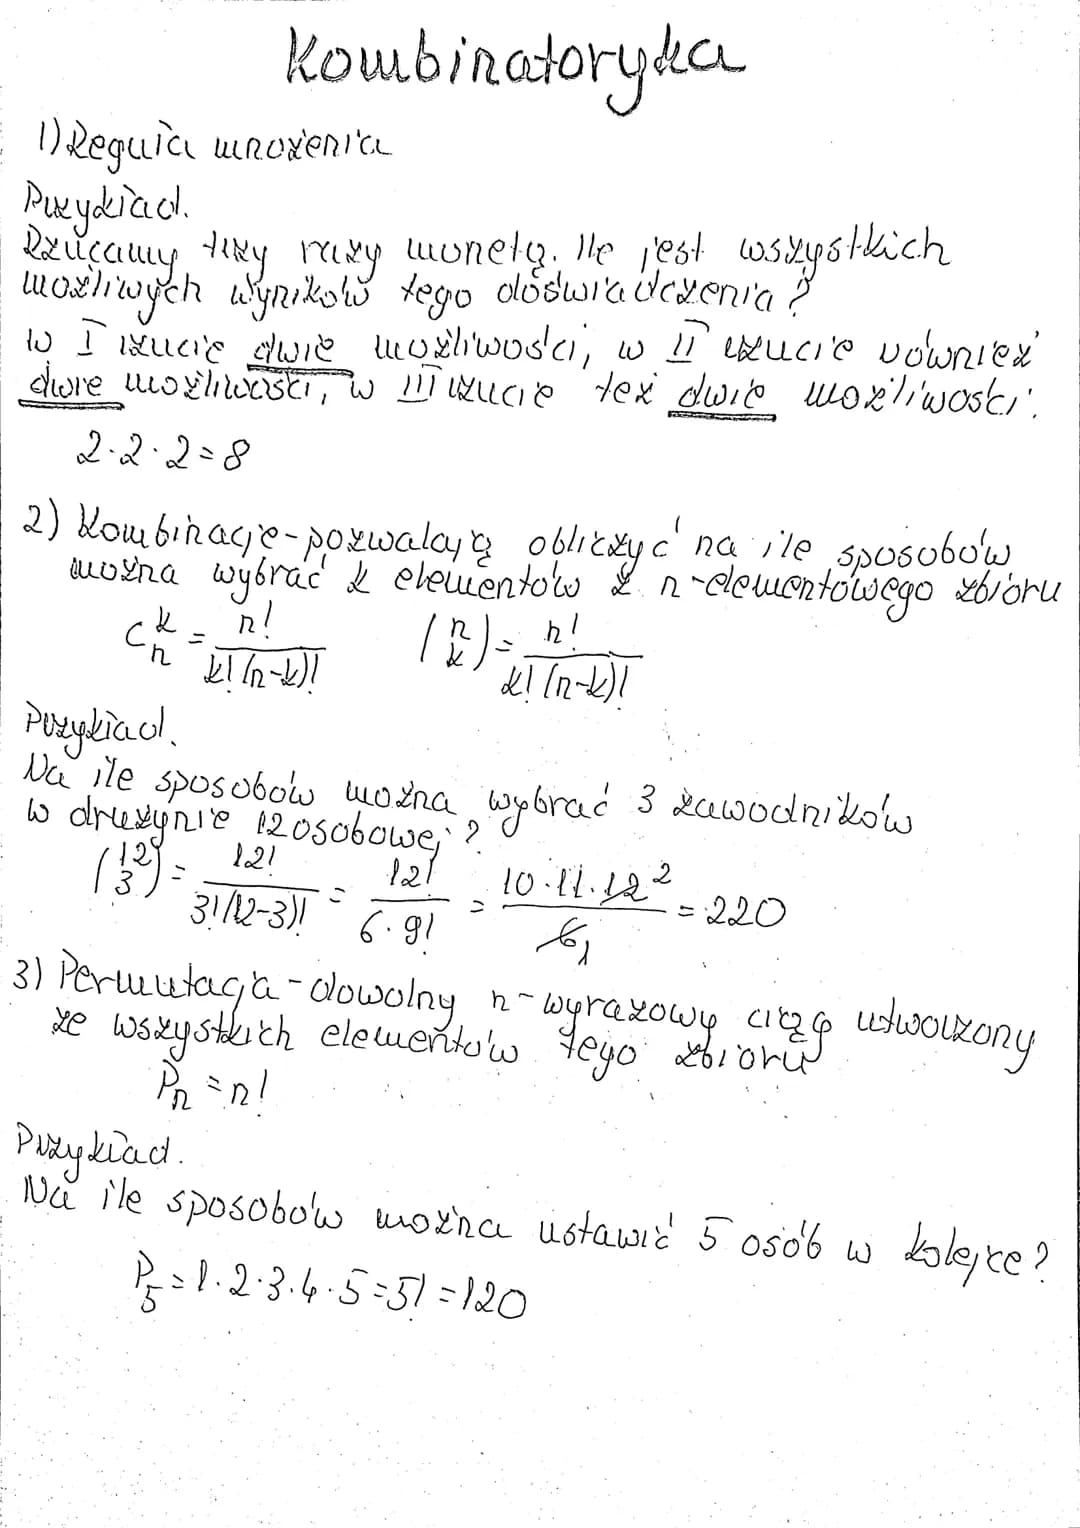 Kombinatoryka
1) Reguła mnożenia
Przykład.
Rzucamy trzy razy monetą. Ile jest wszystkich
możliwych wyników tego doświadczenia?
W I rzucie dwie możliwości, w II rzucie również
dwie możliwości, w III rzucie też dwie możliwości.
2·2·2=8
2) Kombinacje - pozwalają obliczyć na ile sposobów
można wybrać k elementów z n-elementowego zbioru
C_n^k = n!/(k!(n-k)!) (n k) = n!/(k!(n-k)!)
Przykład.
Na ile sposobów można wybrać 3 zawodników
w drużynie 12 osobowej?
(12 3) = 12!/(3!(12-3)!) = 12!/(6·9!) = (10·11·12 2)/(6 1) = 220
3) Permutacja - dowolny n-wyrazowy ciąg utworzony
ze wszystkich elementów tego zbioru
P_n = n!
Przykład.
Na ile sposobów można ustawić 5 osób w kolejce?
P_5 = 1·2·3·4·5 = 5! = 120